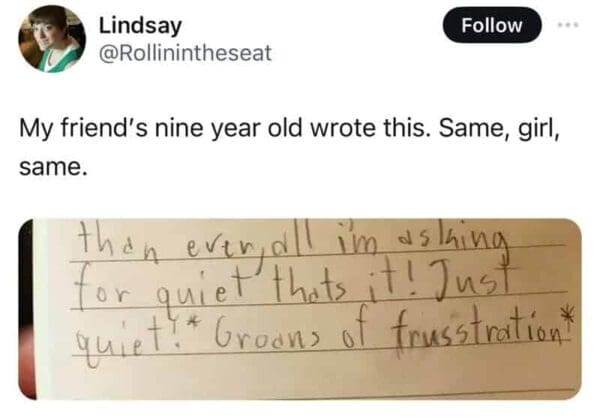 Lindsay
@Rollinintheseat
Follow
My friend's nine year old wrote this. Same, girl,
same.
than ever, all i'm asking
for quiet thats it! Just
quiet! * Groans of frusstration*